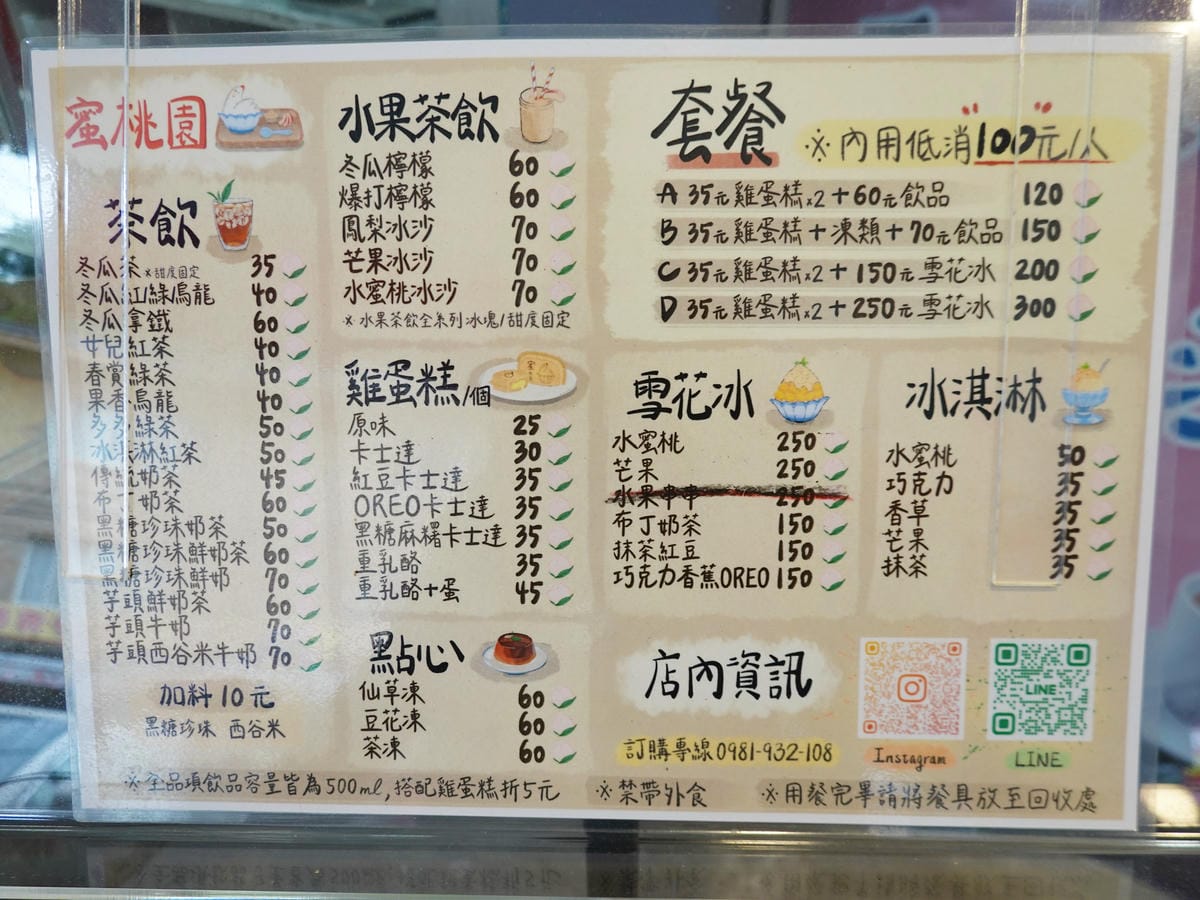 蜜桃園
茶飲
冬瓜茶 ※甜度固定 35
冬瓜紅/綠/烏龍 40
冬瓜拿鐵 60
女兒紅茶 40
春賞綠茶 40
果香烏龍 40
多多綠茶 50
冰淇淋紅茶 50
傳統奶茶 45
布丁奶茶 60
黑糖珍珠奶茶 50
黑糖珍珠鮮奶茶 60
黑糖珍珠鮮奶 70
芋頭鮮奶茶 60
芋頭牛奶 70
芋頭西谷米牛奶 70
加料10元
黑糖珍珠 西谷米
水果茶飲
冬瓜檸檬 60
爆打檸檬 60
鳳梨冰沙 70
芒果冰沙 70
水蜜桃冰沙 70
※水果茶飲全系列冰塊/甜度固定
雞蛋糕/個
原味 25
卡士達 30
紅豆卡士達 35
OREO卡士達 35
黑糖麻糬卡士達 35
重乳酪 35
重乳酪+蛋 45
點心
仙草凍 60
豆花凍 60
茶凍 60
套餐
※內用低消100元/人
A 35元雞蛋糕x2+60元飲品 120
B 35元雞蛋糕+凍類+70元飲品 150
C 35元雞蛋糕x2+150元雪花冰 200
D 35元雞蛋糕x2+250元雪花冰 300
雪花冰
水蜜桃 250
芒果 250
水果串串 250
布丁奶茶 150
抹茶紅豆 150
巧克力香蕉OREO 150
冰淇淋
水蜜桃 50
巧克力 35
香草 35
芒果 35
抹茶 35
店內資訊
訂購專線0981-932-108
Instagram
LINE
LINE
※全品項飲品容量皆為500ml,搭配雞蛋糕折5元
※禁帶外食
※用餐完畢請將餐具放至回收處